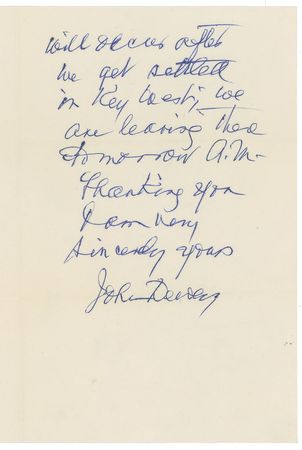 will occur after
we get settled
in Key West; we
are leaving there
tomorrow A.M.-
Thanking you
I am very
sincerely yours
John Dewey